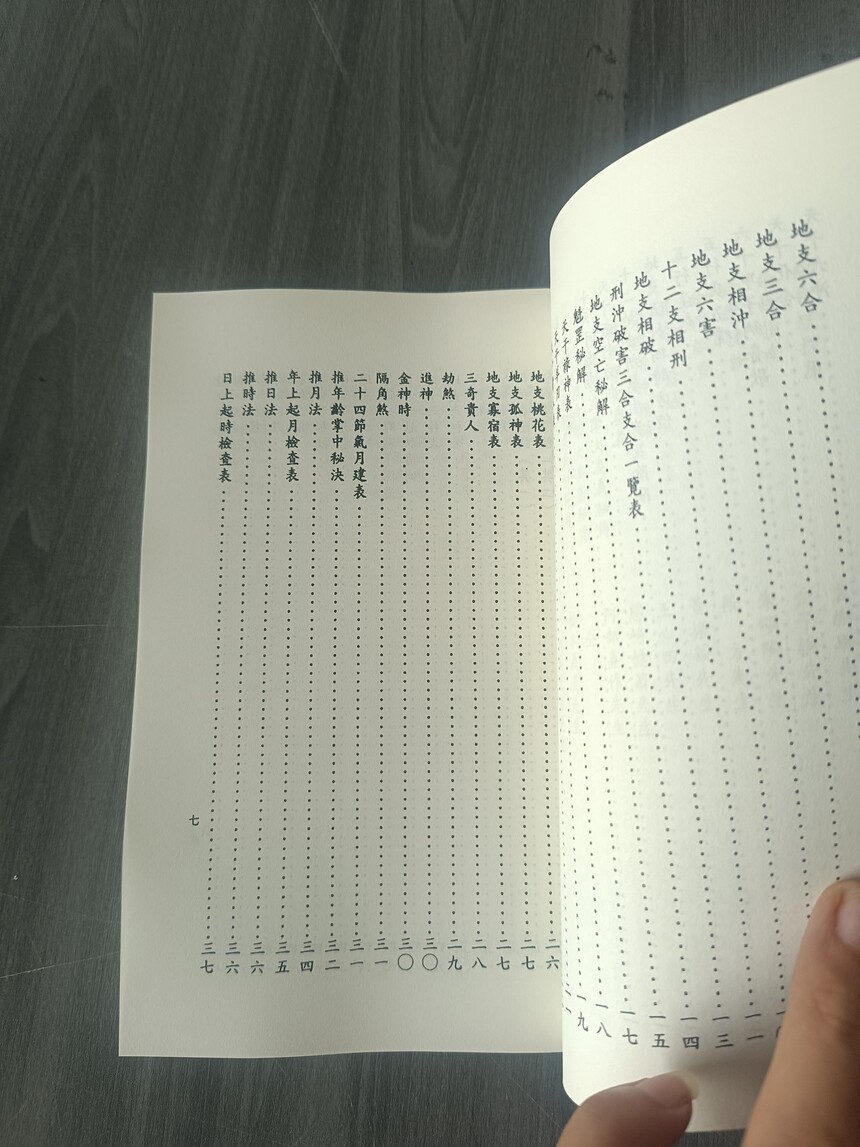 地支六合
地支三合
地支相沖 一一
地支六害 一三
十二支相刑 一四
地支相破 一五
刑沖破害三合支合一覽表 一七
地支空亡秘解 一八
魁罡秘解 一九
天干祿神表
地支桃花表 二六
地支孤神表 二七
地支寡宿表 二七
三奇貴人 二八
劫煞 二九
進神 三〇
金神時 三〇
隔角煞 三一
二十四節氣月瓊表 三一
推年齡掌中秘決 三二
推月法 三四
年上起月檢查表 三五
推日法 三六
推時法 三六
日上起時檢查表 三七
七